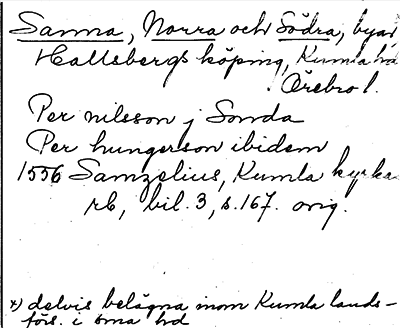 Sanna, Norra och Södra, byar
Hallsbergs köping, Kumla hd
Örebro l.
Per nilsson j Sonda
Per hungerson ibidem
1556 Samzelius, Kumla kyrka
rb, bil. 3, s. 167. orig.
*) delvis belägna inom Kumla lands-
förs. i sma hd